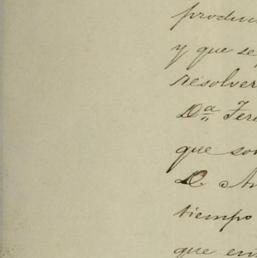 produc
y que se
resolver
Dª Fer
que so
D. An
tiempo
que en